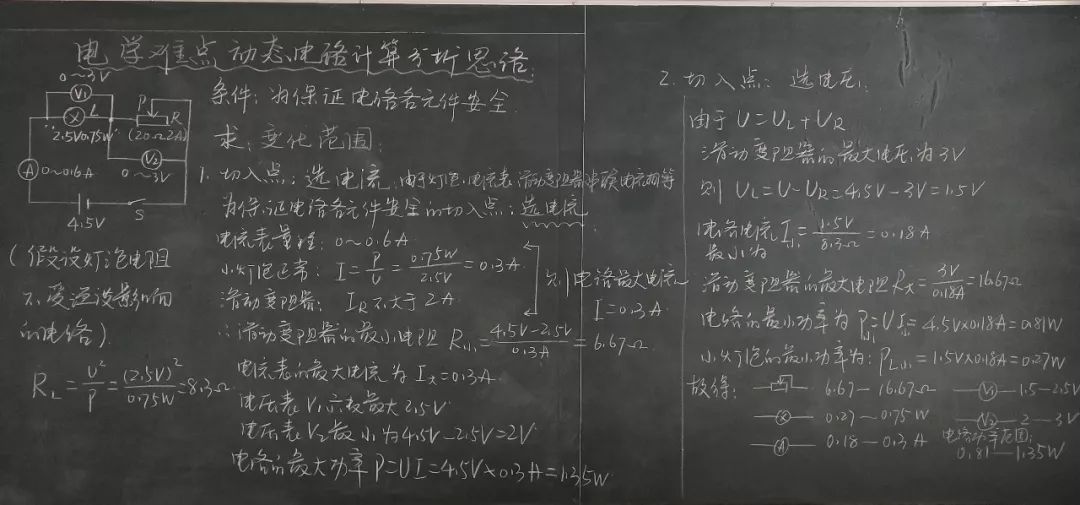 电学难点动态电路计算分析思路:
0～3V
V1
L
P
R
"2.5V0.75W"
(20Ω2A)
V2
A
0～0.6A
0～3V
4.5V
S
(假设灯泡电阻
不受温度影响
的电路)
R_L = U²/P = (2.5V)²/0.75W = 8.3Ω
条件: 为保证电路各元件安全.
求: 变化范围:
1. 切入点: 选电流: 由于灯泡.电流表.滑动变阻器串联电流相等
为保证电路各元件安全的切入点: 选电流
电流表量程: 0～0.6A
小灯泡正常: I = P/U = 0.75W/2.5V = 0.3A
滑动变阻器: I_R不大于2A
则电路最大电流
I=0.3A
∴滑动变阻器的最小电阻 R小 = 4.5V-2.5V/0.3A = 6.67Ω
电流表的最大电流为I大=0.3A
电压表V1示数最大2.5V
电压表V2最小为4.5V-2.5V=2V
电路的最大功率P=UI=4.5V×0.3A=1.35W
2. 切入点: 选电压:
由于U=U_L+U_R
滑动变阻器的最大电压为3V
则 U_L=U-U_R=4.5V-3V=1.5V
电路电流最小为 I小 = 1.5V/8.3Ω = 0.18A
滑动变阻器的最大电阻R大 = 3V/0.18A = 16.67Ω
电路的最小功率为P小=UI小=4.5V×0.18A=0.81W
小灯泡的最小功率为: P_L小=1.5V×0.18A=0.27W
故得: 6.67—16.67Ω V1 1.5-2.5V
0.27—0.75W V2 2—3V
A 0.18—0.3A 电路功率范围:
0.81—1.35W